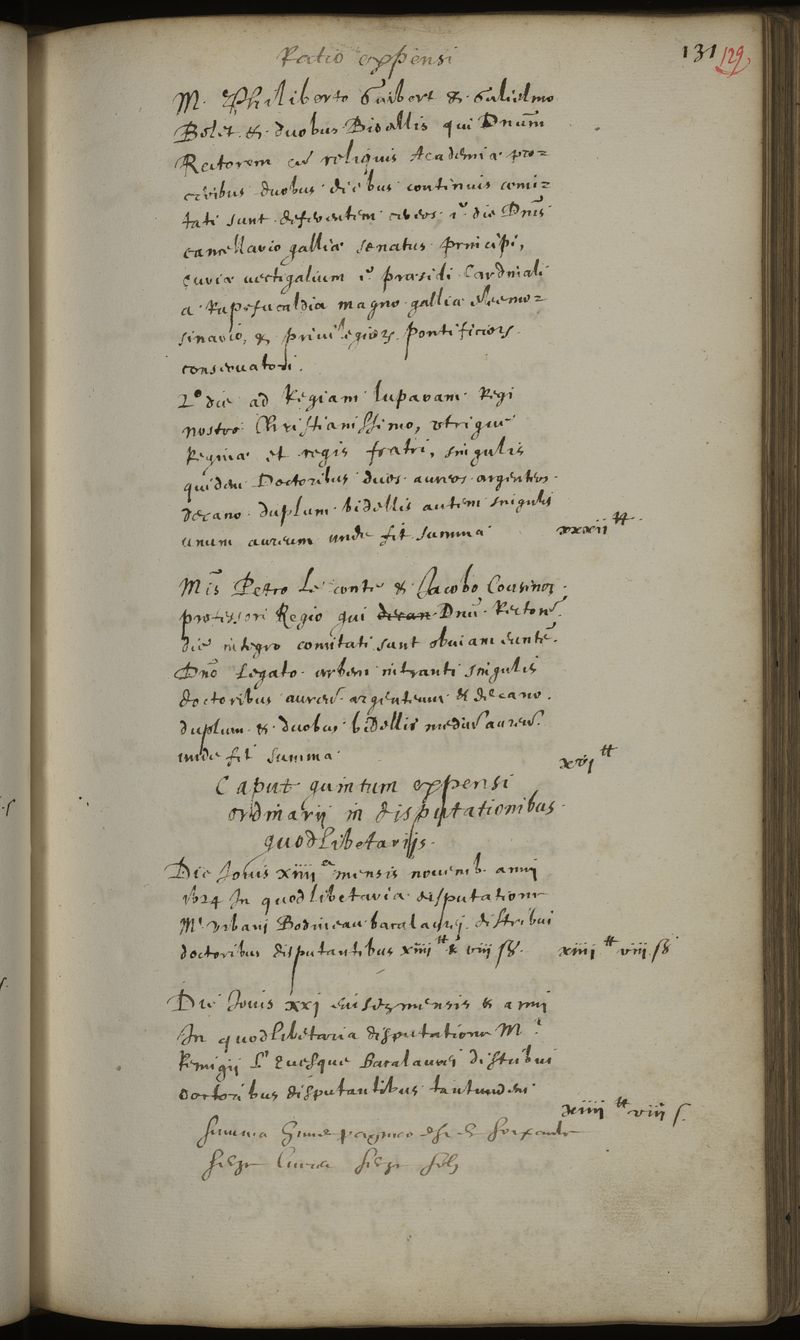 Ratio expensi
131 129
M. Philiberto Guibert & Gulielmo
Bolet. & duobus Bidellis qui Dnum
Rectorem cū reliquis Academiæ pro=
ceribus duobus diebus continuis comi=
tati sunt deferentem cereos 1ᵃ die Dnis
cancellario galliæ senatus principi,
curiæ vectigalium 1º præsidi Cardinali
a Rupefucaldia magno galliæ eleemo=
sinario, & privilegiorʒ pontificiorʒ
conservatori.
2º die ad Regiam luparam Regi
nostro Christianissimo, utriquē
Reginæ et regis fratri, singulis
quidem Doctoribus duos aureos argenteos
decano duplum bidellis autem singulis
unum aureum unde fit summa xxxii tt
Mis Petro Le conte & Jacobo Cousinot
professori Regio qui decan Dnū Rectorē
die integro comitati sunt obviam euntē
Dno Legato urbem intranti singulis
doctoribus aureū argenteum & decano
duplum & duobus bidellis mediū aureū
unde fit summa xvi tt
Caput quintum expensi
ordinarij in disputationibus
quodlibetarijs.
Die Jovis xiiii a mensis novemb. anni
1624 In quodlibetaria disputatione
Mi Urbani Bodineau baccalaurei distribui
doctoribus disputantibus xiiii tt & viii ss. xiiii tt viii ss
Die Jovis xxi eiusdemmensis & anni
In quodlibetaria disputatione M i
Remigij L'Evesque Baccalaurei distribui
doctoribus disputantibus tantumdem
xiiii tt viii s
Summa paginæ est de soixante
seize livres seize solz